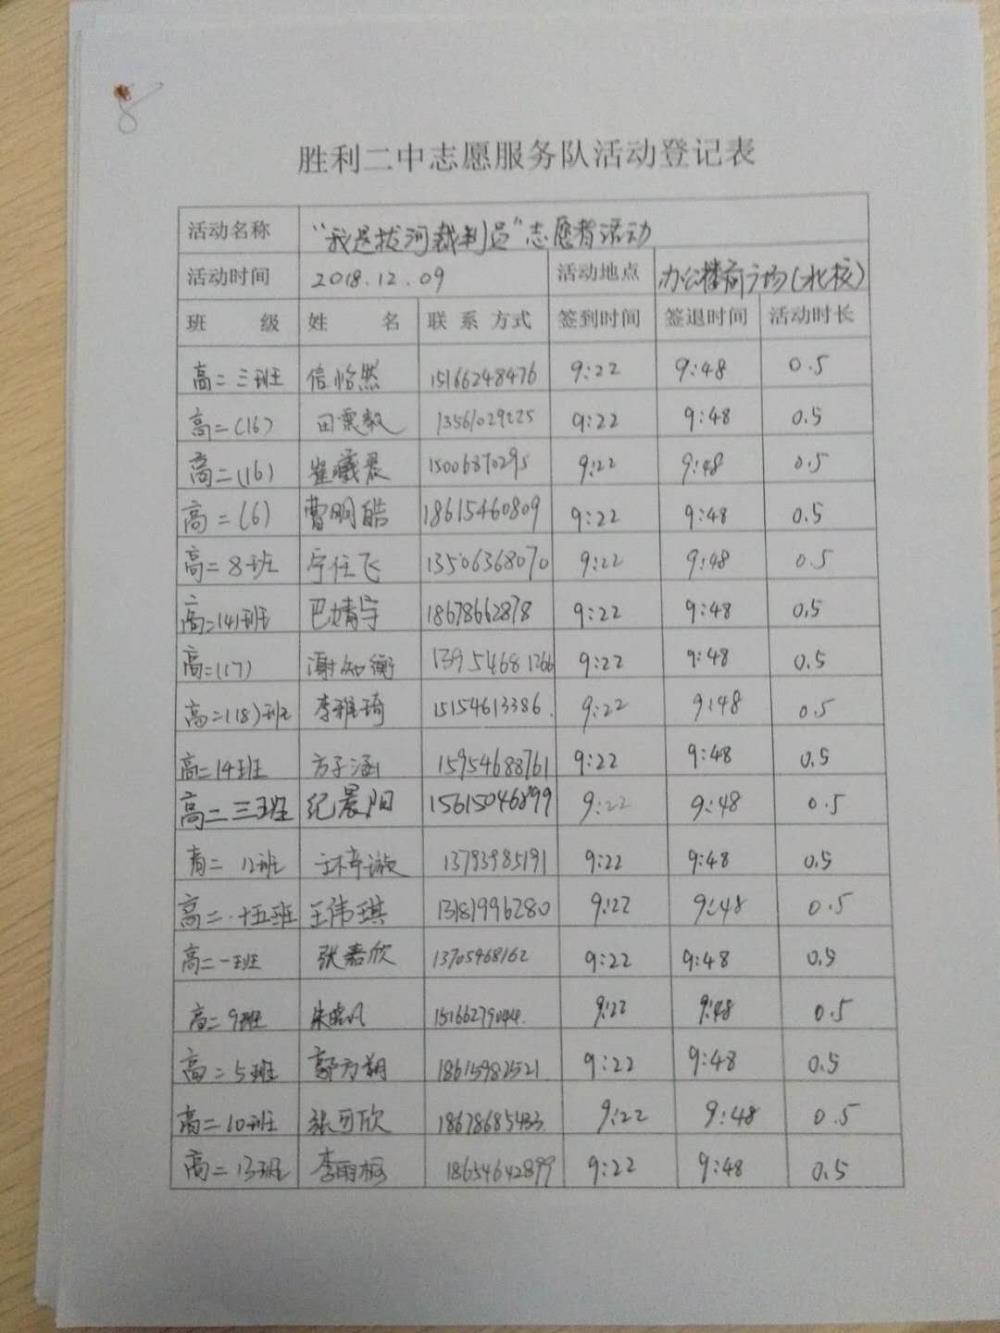 8
胜利二中志愿服务队活动登记表
活动名称 "我是拔河裁判员"志愿者活动
活动时间 2018.12.09 活动地点 办公楼前广场(北校)
班 级 姓 名 联 系 方式 签到时间 签退时间 活动时长
高二三班 信怡然 15166248476 9:22 9:48 0.5
高二(16) 田 13561029225 9:22 9:48 0.5
高二(16) 崔曦晨 15006870295 9:22 9:48 0.5
高二(6) 曹明皓 18615460809 9:22 9:48 0.5
高二8班 宁任飞 13506368070 9:22 9:48 0.5
高二(4)班 巴婧宇 18678662878 9:22 9:48 0.5
高二(7) 谢知衡 13954681266 9:22 9:48 0.5
高二(18)班 李雅琦 15154613386. 9:22 9:48 0.5
高二14班 方子涵 15954688761 9:22 9:48 0.5
高二三班 纪晨阳 15615046899 9:22 9:48 0.5
高二 12班 13793985191 9:22 9:48 0.5
高二.十五班 王伟琪 13181996280 9:22 9:48 0.5
高二一班 张嘉欣 13705468162 9:22 9:48 0.5
高二9班 9:22 9:48 0.5
高二5班 郭方朔 18615982521 9:22 9:48 0.5
高二10班 张可欣 18678685433. 9:22 9:48 0.5
高二13班 李雨桐 18654642899 9:22 9:48 0.5